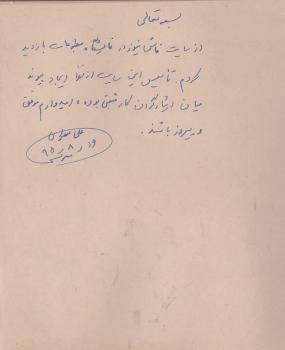 بسمه تعالی
از سایت فاش نیوز در نمایشگاه مطبوعات بازدید
کردم. تأسیس این سایت از نظر ایجاد پیوند
میان ایثارگران کار مثبتی بوده، امیدوارم موفق
و پیروز باشند.
علی
۹۵ر۸ر۱۶